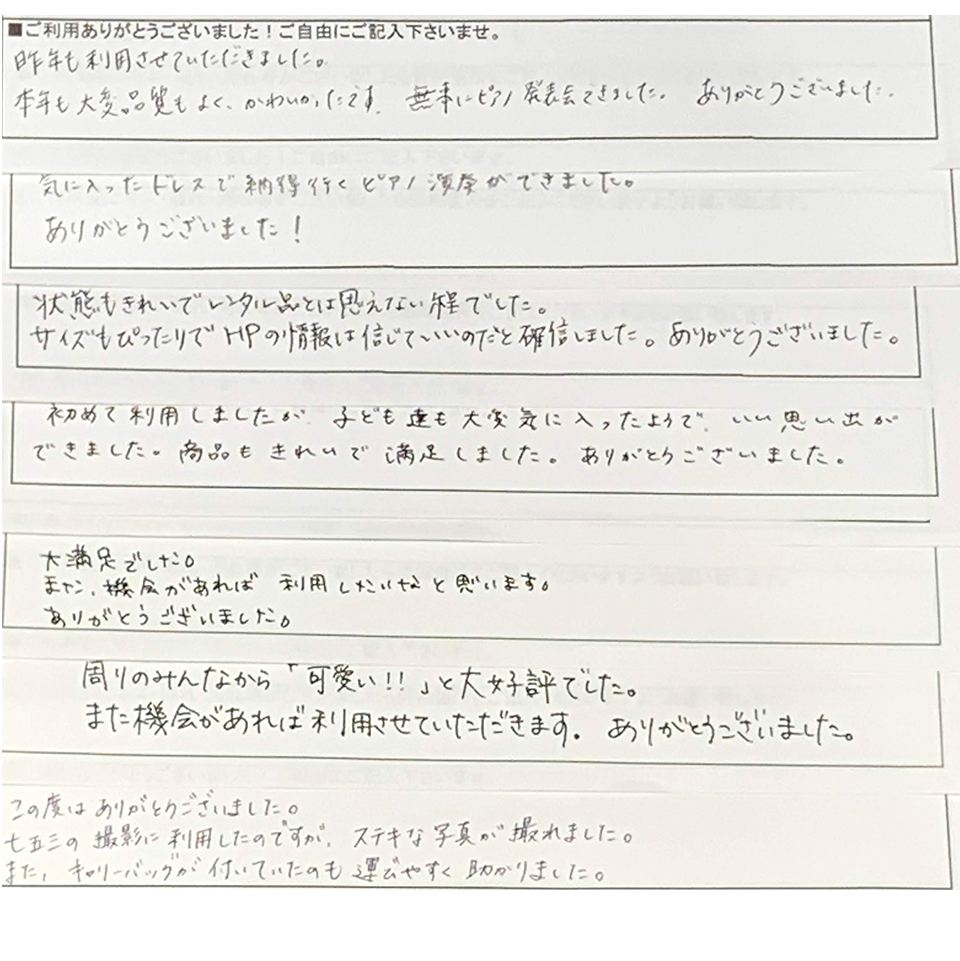 ■ご利用ありがとうございました！ご自由にご記入下さいませ。
昨年も利用させていただきました。
本年も大変品質もよく、かわいかったです。無事にピアノ発表会できました。ありがとうございました。
気に入ったドレスで納得行くピアノ演奏ができました。
ありがとうございました！
状態もきれいでレンタル品とは思えない程でした。
サイズもぴったりでHPの情報は信じていいのだと確信しました。ありがとうございました。
初めて利用しましたが、子ども達も大変気に入ったようで、いい思い出が
できました。商品もきれいで満足しました。ありがとうございました。
大満足でした。
また、機会があれば利用したいなと思います。
ありがとうございました。
周りのみんなから「可愛い!!」と大好評でした。
また機会があれば利用させていただきます。ありがとうございました。
この度はありがとうございました。
七五三の撮影に利用したのですが、ステキな写真が撮れました。
また、キャリーバッグが付いていたのも運びやすく助かりました。